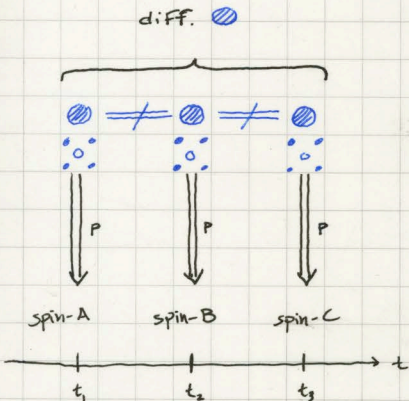 diff.
P P P
spin-A spin-B spin-C
t
t₁ t₂ t₃